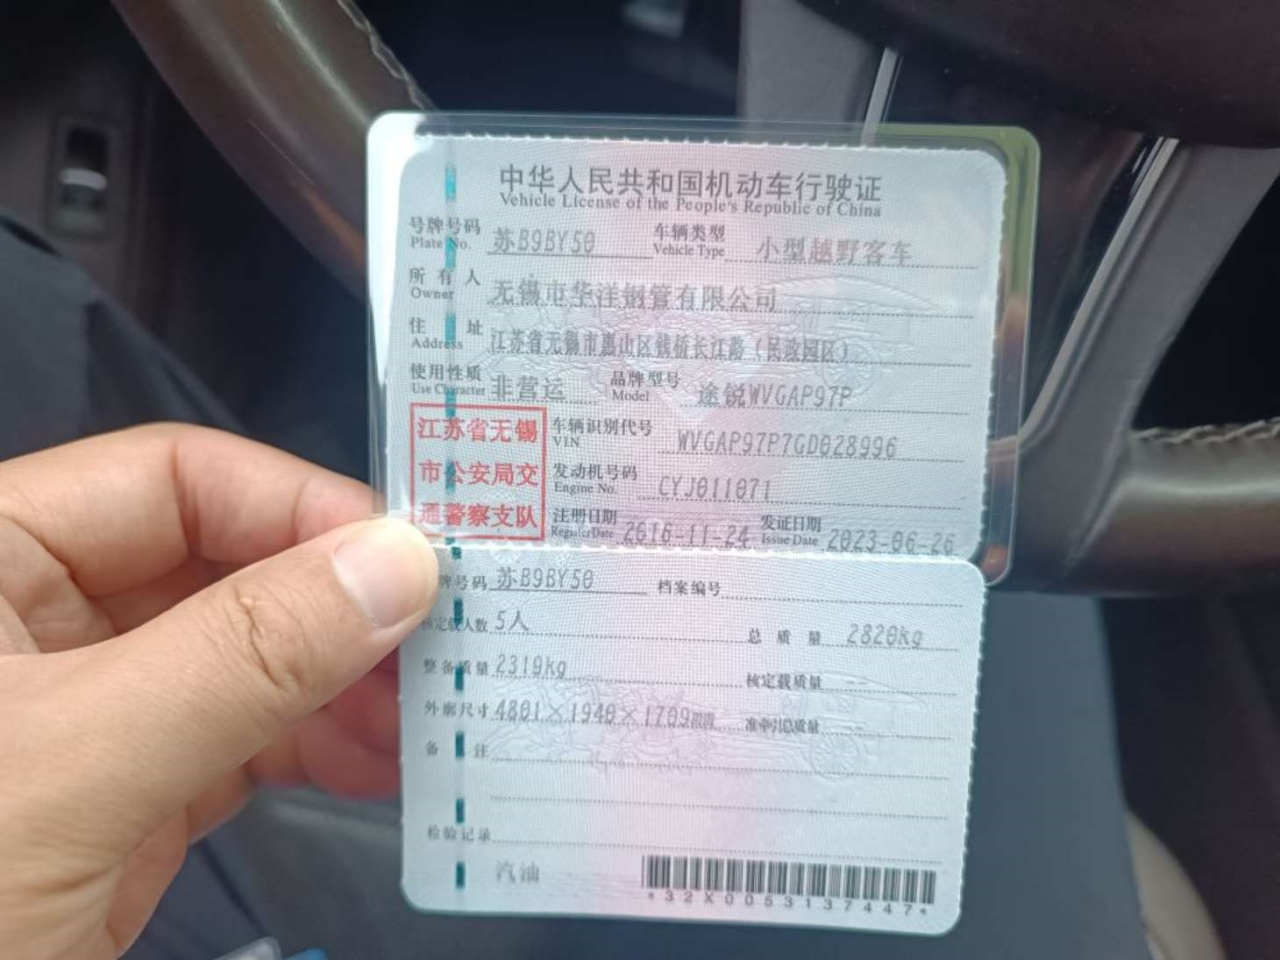 中华人民共和国机动车行驶证
Vehicle License of the People's Republic of China
号牌号码 苏B9BY50 车辆类型 小型越野客车
Plate No. Vehicle Type
所有人 无锡市华洋钢管有限公司
Owner
住址 江苏省无锡市惠山区钱桥长江路（民政园区）
Address
使用性质 非营运 品牌型号 途锐WVGAP97P
Use Character Model
江苏省无锡
市公安局交
通警察支队
车辆识别代号 WVGAP97P7GD028996
VIN
发动机号码 CYJ011071
Engine No.
注册日期 2016-11-24 发证日期 2023-06-26
Register Date Issue Date
牌号码 苏B9BY50 档案编号
核定载人数 5人 总质量 2820kg
整备质量 2319kg 核定载质量 --
外廓尺寸 4801×1940×1709mm 准牵引总质量 --
备注
检验记录
汽油
*32X0053137447*